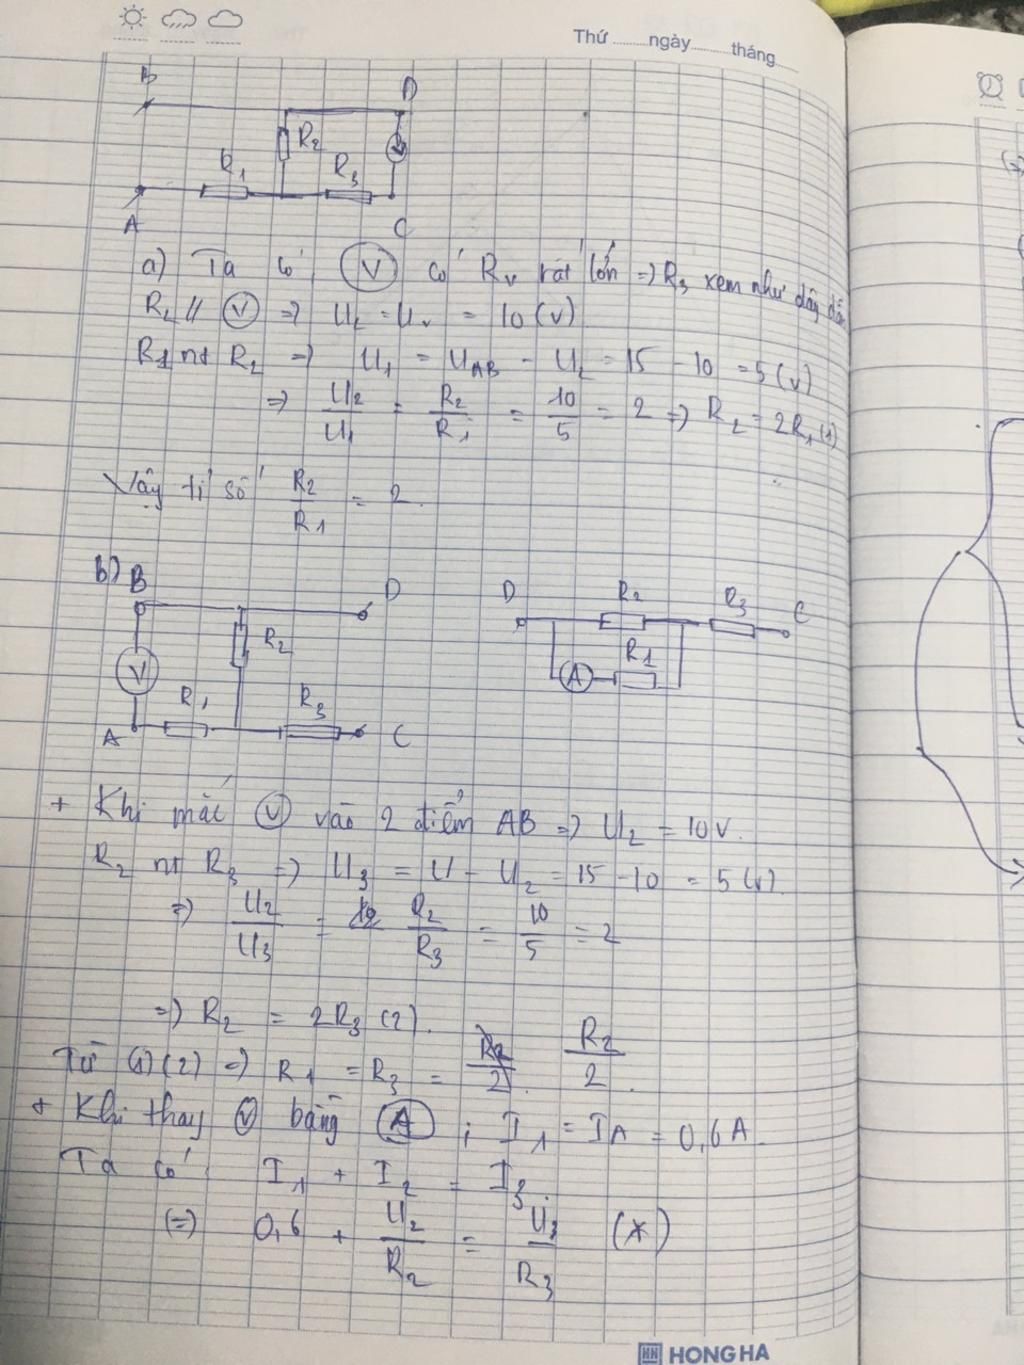 Thứ ........ngày........tháng........
B
D
R2
R1
R3
A
C
a) Ta có V có Rv rất lớn => R3 xem như dây dẫn
R2 // V => U2 = Uv = 10 (V)
R1 nt R2 => U1 = UAB - U2 = 15 - 10 = 5 (V)
=> U2/U1 = R2/R1 = 10/5 = 2 => R2 = 2R1 (1)
Vậy tỉ số R2/R1 = 2.
b)
B
D
D
R2
R3
C
R2
V
R1
A
R1
R3
A
C
+ Khi mắc V vào 2 điểm AB => U2 = 10V.
R2 nt R3 => U3 = U - U2 = 15 - 10 = 5 (V).
=> U2/U3 = R2/R3 = 10/5 = 2
=> R2 = 2R3 (2).
Từ (1) (2) => R1 = R3 = R2/2.
+ Khi thay V bằng A ; I1 = IA = 0,6A.
Ta có I1 + I2 = I3
(=) 0,6 + U2/R2 = U3/R3 (*)
HONG HA